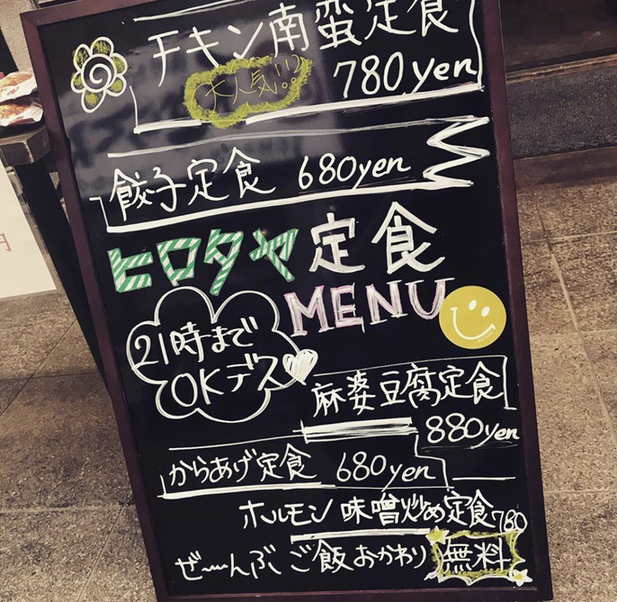 チキン南蛮定食
大人気!!? 780yen
餃子定食 680yen
ヒロタヤ定食
MENU
21時まで
OKデス
麻婆豆腐定食
880yen
からあげ定食 680yen
ホルモン味噌炒め定食780
ぜーんぶご飯おかわり無料
円